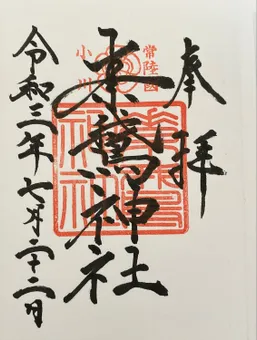 奉拝
常陸國
小川
素鵞神社
令和三年七月二十二日